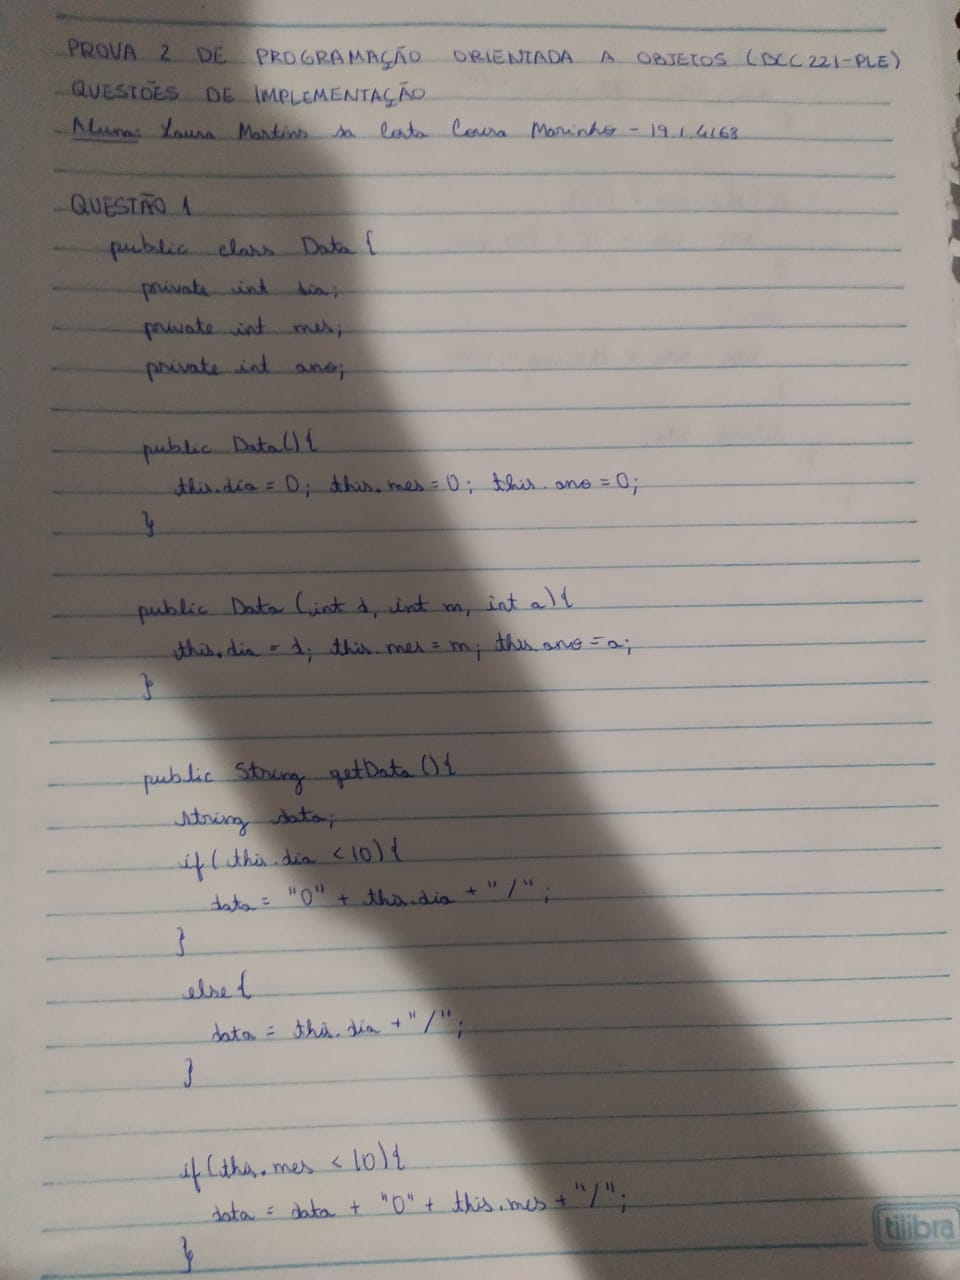 PROVA 2 DE PROGRAMAÇÃO ORIENTADA A OBJETOS (DCC221-PLE)
QUESTÕES DE IMPLEMENTAÇÃO
Aluna: Laura Martins da Costa Marinho - 19.1.4163
QUESTÃO 1
public class Data {
private int dia;
private int mes;
private int ano;
public Data(){
this.dia = 0; this.mes = 0; this.ano = 0;
}
public Data (int d, int m, int a){
this.dia = d; this.mes = m; this.ano = a;
}
public String getData (){
string data;
if( this.dia < 10){
data = "0" + this.dia + "/";
}
else{
data = this.dia + "/";
}
if(this.mes < 10){
data = data + "0" + this.mes + "/";
}
tilibra